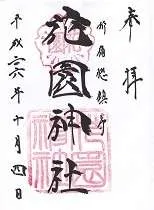 奉拝
新宿総鎮守
花園神社
平成二六年十月四日